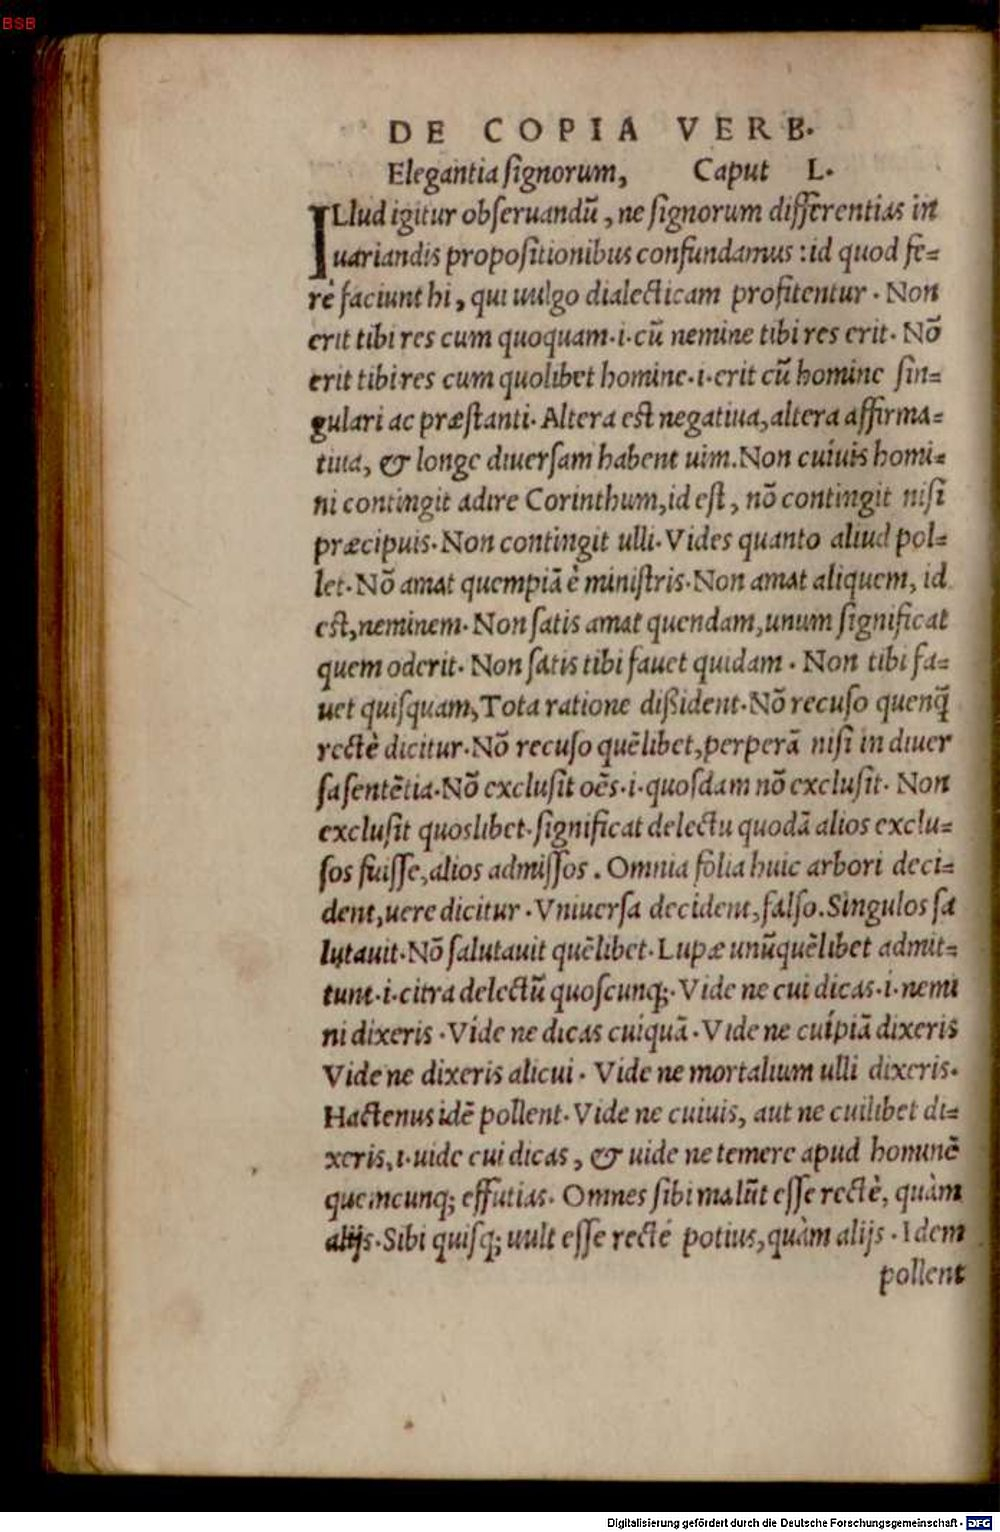 BSB
DE COPIA VERB.
Elegantia ſignorum, Caput L.
ILlud igitur obſeruandũ, ne ſignorum differentias in
uariandis propoſitionibus confundamus : id quod fe=
rè faciunt hi, qui uulgo dialecticam profitentur . Non
erit tibi res cum quoquam.i.cũ nemine tibi res erit. Nõ
erit tibi res cum quolibet homine.i.erit cũ homine ſin=
gulari ac præſtanti. Altera eſt negatiua, altera affirma=
tiua, & longe diuerſam habent uim. Non cuíuis homi=
ni contingit adire Corinthum, id eſt, nõ contingit niſi
præcipuis. Non contingit ulli. Vides quanto aliud pol=
let. Nõ amat quempiã è miniſtris. Non amat aliquem, id
eſt, neminem. Non ſatis amat quendam, unum ſignificat
quem oderit. Non ſatis tibi fauet quidam . Non tibi fa=
uet quiſquam, Tota ratione dißident. Nõ recuſo quenq̃
rectè dicitur. Nõ recuſo quẽlibet, perperã niſi in diuer
ſa ſentẽtia. Nõ excluſit oẽs.i.quoſdam nõ excluſit. Non
excluſit quoslibet. ſignificat delectu quodã alios exclu=
ſos fuiſſe, alios admiſſos . Omnia folia huic arbori deci=
dent, uere dicitur . Vniuerſa decident, falſo. Singulos ſa
lutauit. Nõ ſalutauit quẽlibet. Lupæ unũquẽlibet admit=
tunt.i.citra delectũ quoſcunq;. Vide ne cui dicas.i.nemi
ni dixeris . Vide ne dicas cuiquã . Vide ne cuípiã dixeris
Vide ne dixeris alicui . Vide ne mortalium ulli dixeris.
Hactenus idẽ pollent. Vide ne cuiuis, aut ne cuilibet di=
xeris, i.uide cui dicas, & uide ne temere apud hominẽ
quemcunq; effutias. Omnes ſibi malũt eſſe rectè, quàm
alijs. Sibi quiſq; uult eſſe recté potius, quàm alijs . Idem
pollent
Digitalisierung gefördert durch die Deutsche Forschungsgemeinschaft - DFG